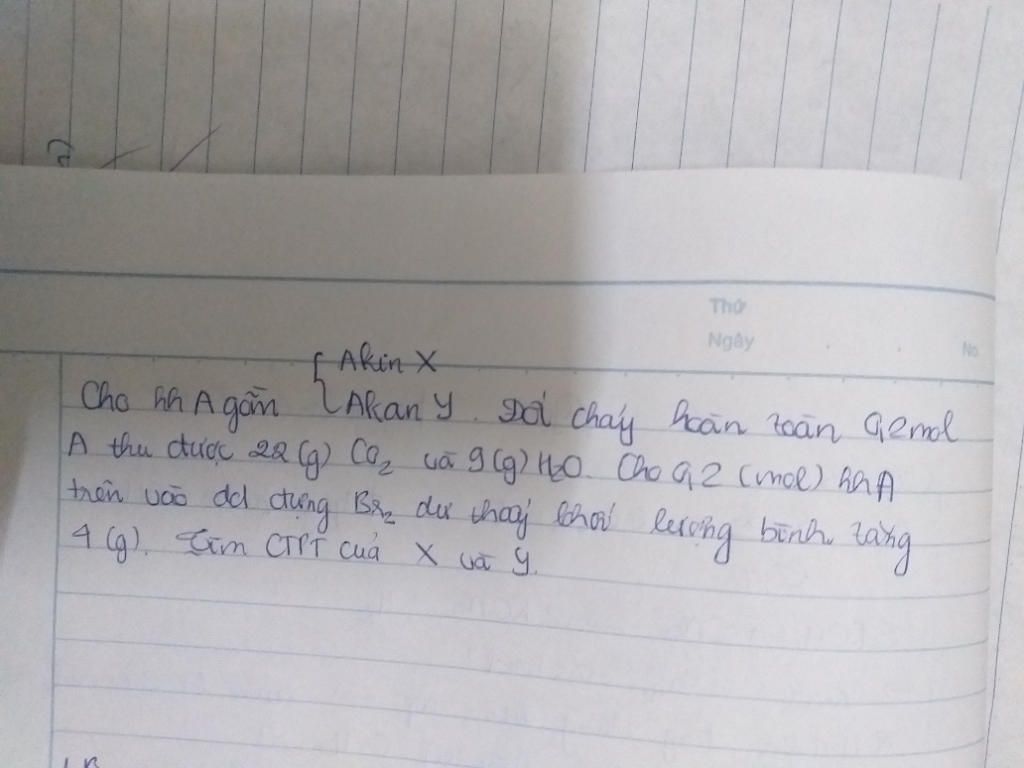 Thứ
Ngày
No
Akin X
Cho hh A gồm Akan Y. Đốt cháy hoàn toàn 0,2 mol
A thu được 22 (g) CO2 và 9 (g) H2O. Cho 0,2 (mol) hh A
trên vào dd đựng Br2 dư thấy khối lượng bình tăng
4 (g). Tìm CTPT của X và Y.